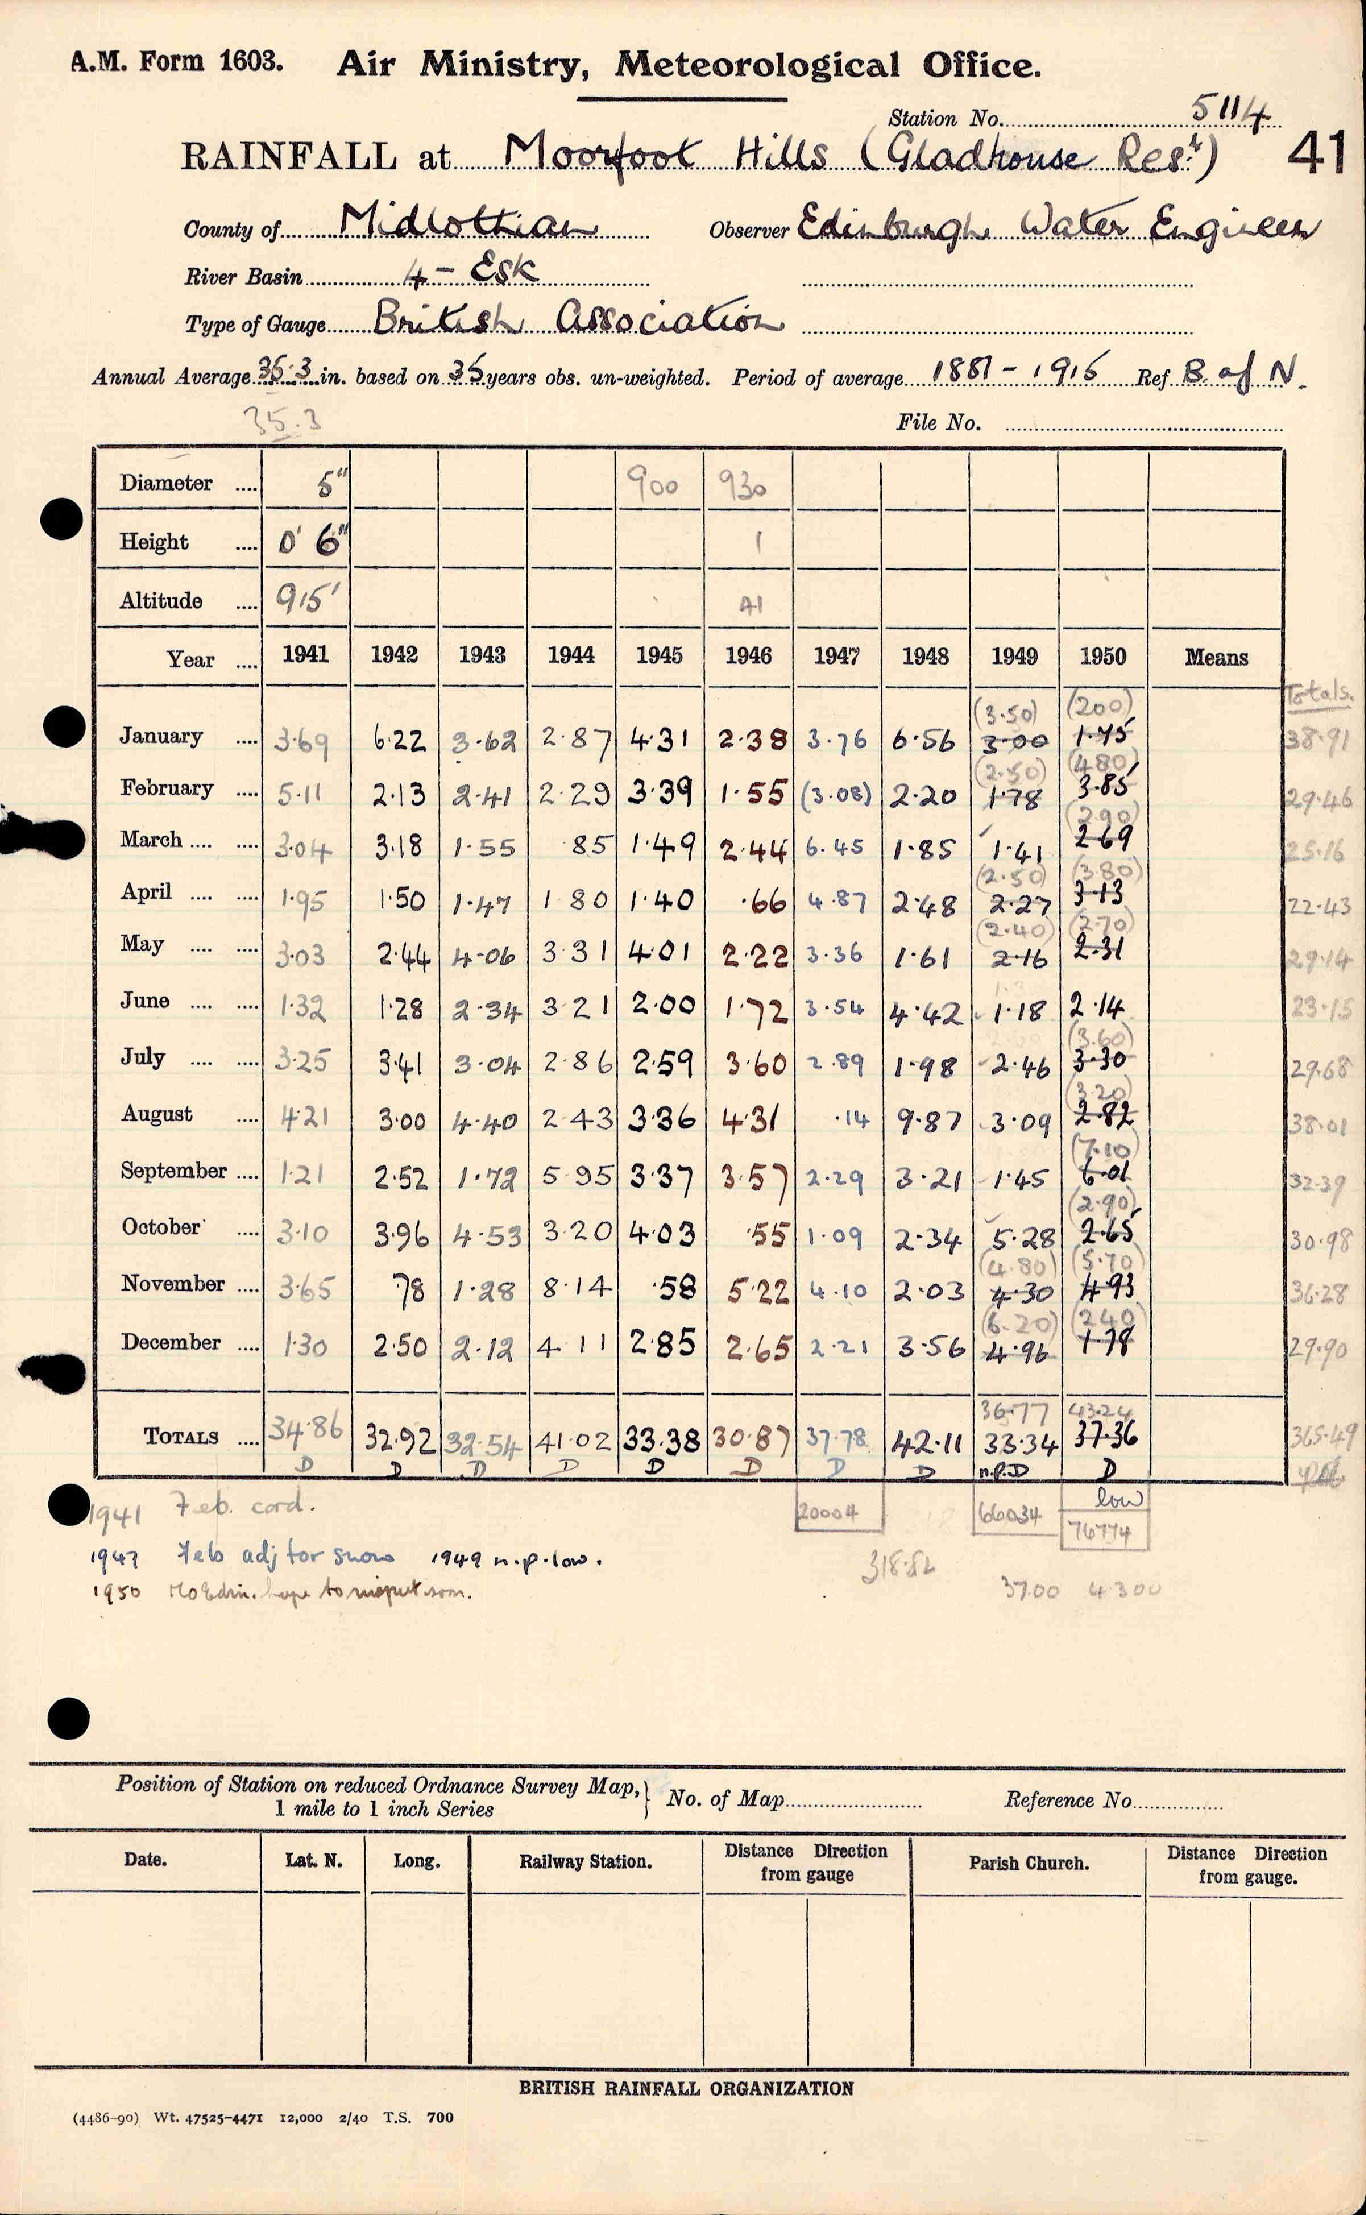 A.M. Form 1603. Air Ministry, Meteorological Office.
Station No. 5114
RAINFALL at Moorfoot Hills (Gladhouse Resr.) 41
County of Midlothian Observer Edinburgh Water Engineer
River Basin 4 - Esk
Type of Gauge British Association
Annual Average 35.3 in. based on 35 years obs. un-weighted. Period of average 1881 - 1915 Ref B. of N.
35.3
File No.
Diameter .... 5" 900 930
Height .... 0' 6" 1
Altitude .... 915' A1
Year .... 1941 1942 1943 1944 1945 1946 1947 1948 1949 1950 Means
Totals.
(3.50) (200)
January .... 3.69 6.22 3.62 2.87 4.31 2.38 3.76 6.56 3.00 1.75 38.91
(2.50) (480)
February .... 5.11 2.13 2.41 2.29 3.39 1.55 (3.08) 2.20 1.78 3.85 29.46
(2.90)
March .... .... 3.04 3.18 1.55 .85 1.49 2.44 6.45 1.85 1.41 2.69 25.16
(2.50) (3.80)
April .... .... 1.95 1.50 1.47 1.80 1.40 .66 4.87 2.48 2.27 3.13 22.43
(2.40) (2.70)
May .... .... 3.03 2.44 4.06 3.31 4.01 2.22 3.36 1.61 2.16 2.31 29.14
June .... .... 1.32 1.28 2.34 3.21 2.00 1.72 3.54 4.42 1.18 2.14 23.15
(3.60)
July .... .... 3.25 3.41 3.04 2.86 2.59 3.60 2.89 1.98 2.46 3.30 29.68
(3.20)
August .... 4.21 3.00 4.40 2.43 3.36 4.31 .14 9.87 3.09 2.82 38.01
(7.10)
September .... 1.21 2.52 1.72 5.95 3.37 3.57 2.29 3.21 1.45 6.01 32.39
(2.90)
October .... 3.10 3.96 4.53 3.20 4.03 .55 1.09 2.34 5.28 2.65 30.98
(4.80) (5.70)
November .... 3.65 .78 1.28 8.14 .58 5.22 4.10 2.03 4.30 4.93 36.28
(6.20) (240)
December .... 1.30 2.50 2.12 4.11 2.85 2.65 2.21 3.56 4.96 1.78 29.90
36.77 43.24
TOTALS .... 34.86 32.92 32.54 41.02 33.38 30.87 37.78 42.11 33.34 37.36 365.49
D D D D D D D D n.p.D D
low
1941 Feb. card. 20004 66034 76774
1947 Feb adj for snow 1949 n.p. low. 318.82
1950 3700 4300
Position of Station on reduced Ordnance Survey Map, 1 mile to 1 inch Series } No. of Map Reference No
Date. Lat. N. Long. Railway Station. Distance Direction from gauge Parish Church. Distance Direction from gauge.
BRITISH RAINFALL ORGANIZATION
(4486-90) Wt. 47525-4471 12,000 2/40 T.S. 700